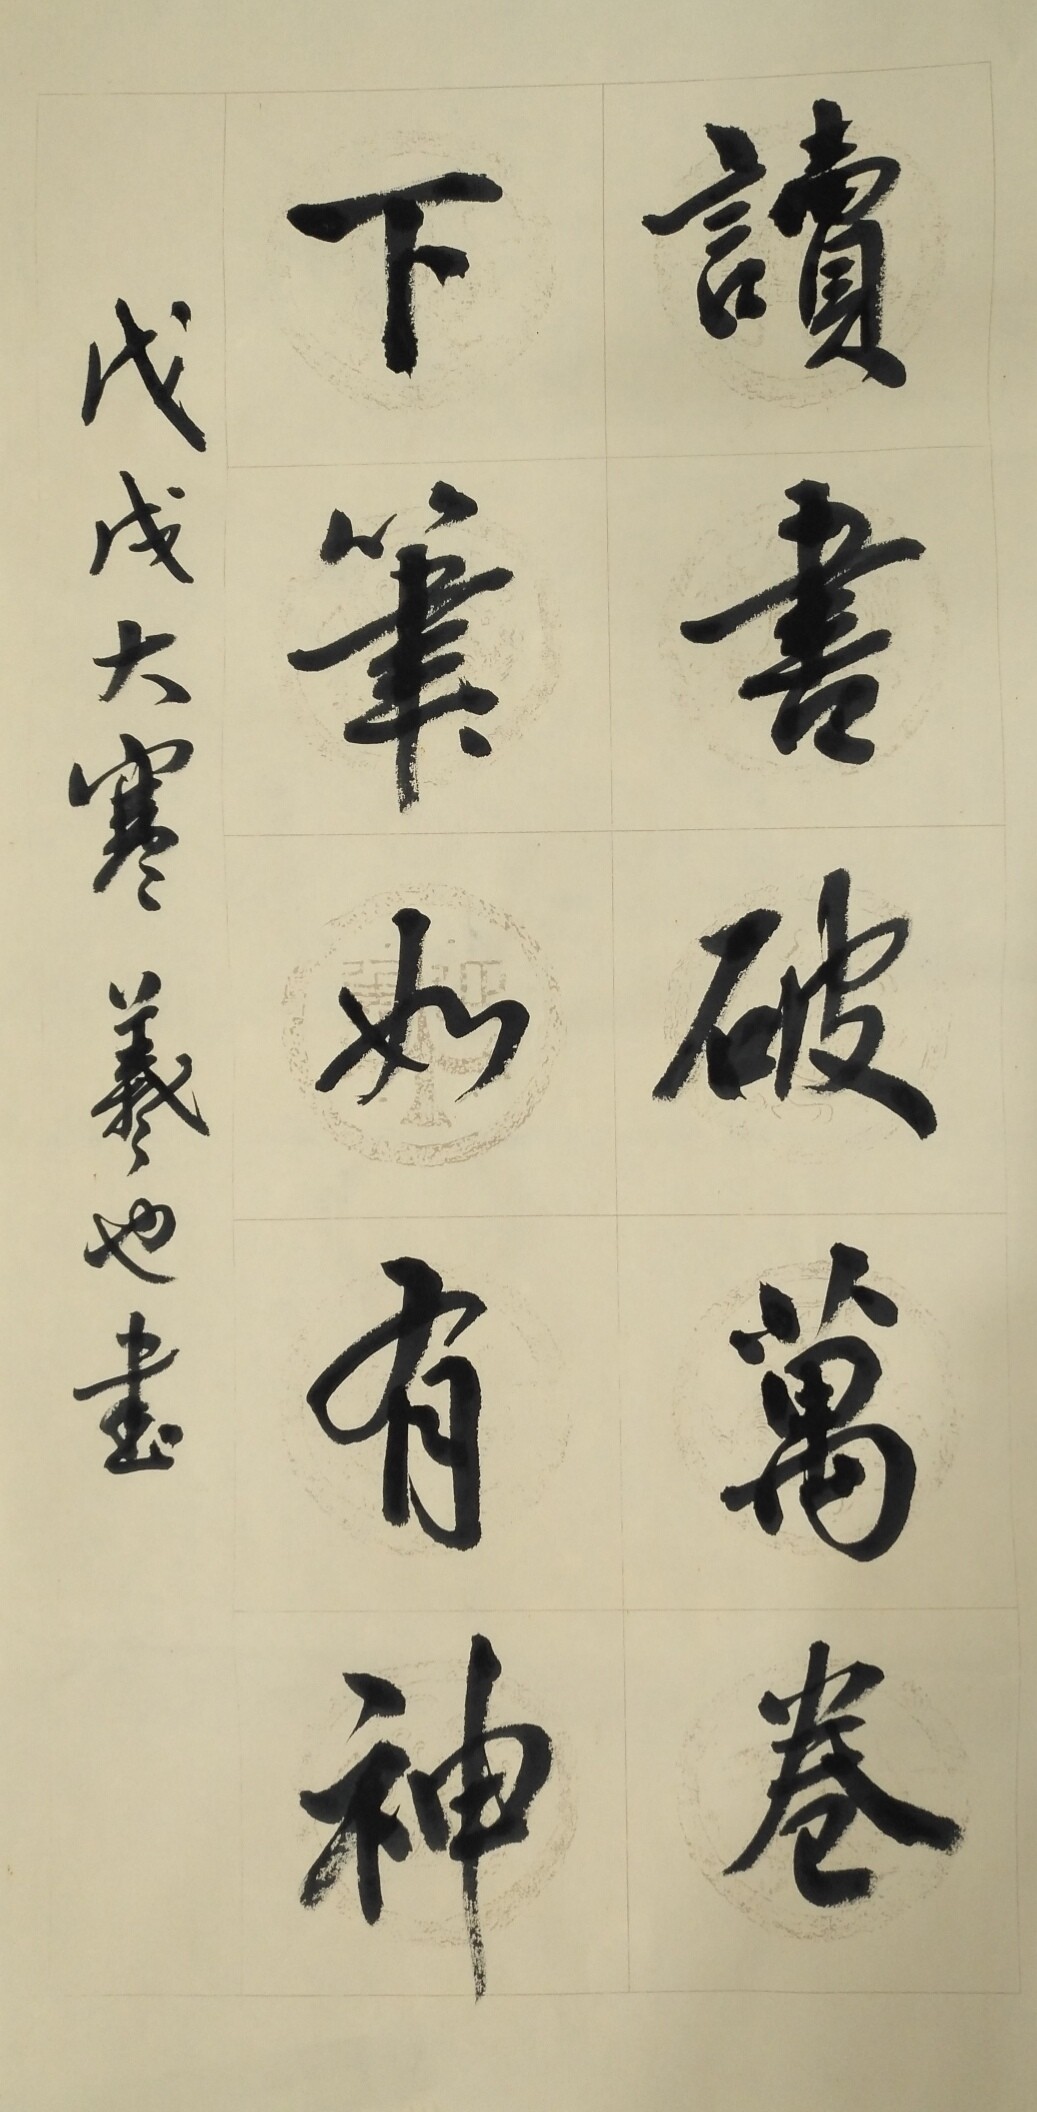 讀書破萬卷
下筆如有神
戊戌大寒羲也書